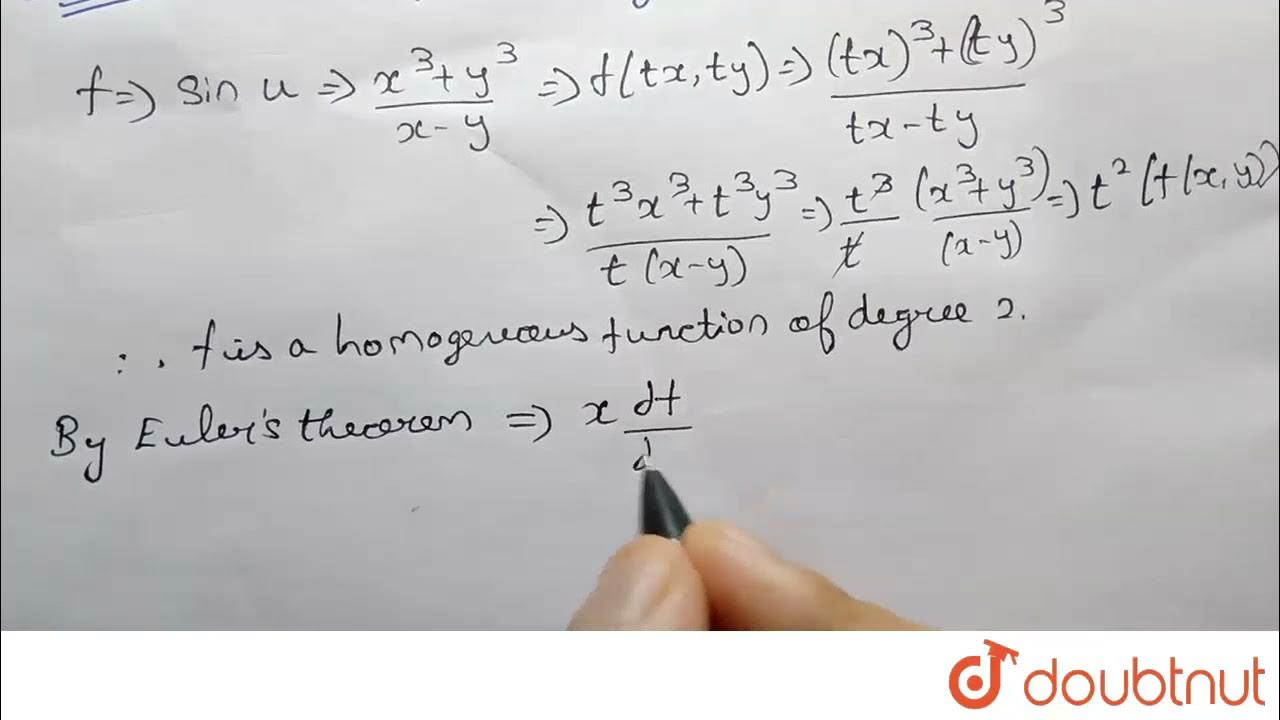 f ⇒ sin u ⇒ x³+y³ / x-y ⇒ f(tx,ty) ⇒ (tx)³+(ty)³ / tx-ty
⇒ t³x³+t³y³ / t(x-y) ⇒ t³/t (x³+y³)/(x-y) ⇒ t²(f(x,y))
∴ f is a homogeneous function of degree 2.
By Euler's theorem ⇒ x df/d
doubtnut